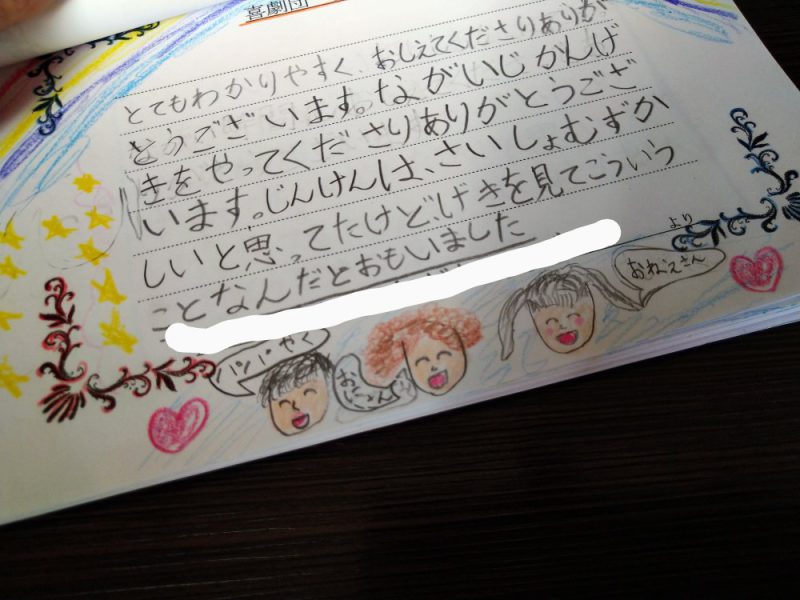 喜劇団
とてもわかりやすく、おしえてくださりありが
とうございます。ながいじかんげ
きをやってくださりありがとうござ
います。じんけんは、さいしょむずか
しいと思ってたけど、げきを見てこういう
ことなんだとおもいました
より
パパやく
おにいさん
おねえさん